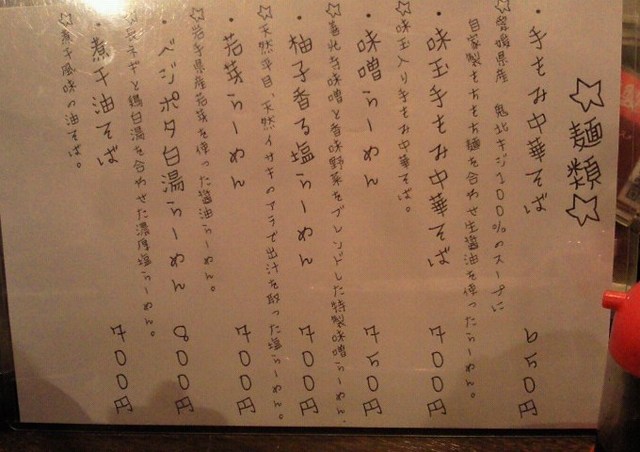 ☆麺類☆
・手もみ中華そば 650円
☆愛媛県産 鬼北キジ100%のスープに
自家製もちもち麺を合わせ生醤油を使ったらーめん。
・味玉手もみ中華そば 700円
☆味玉入り手もみ中華そば。
・味噌らーめん 750円
味噌と香味野菜をブレンドした特製味噌らーめん。
・柚子香る塩らーめん 700円
☆天然平目、天然イサキのアラで出汁を取った塩らーめん。
・若芽らーめん 700円
☆岩手県産若芽を使った醤油らーめん。
・ベジポタ白湯らーめん 800円
ネギと鶏白湯を合わせた濃厚塩らーめん。
・煮干油そば 700円
☆煮干風味の油そば。